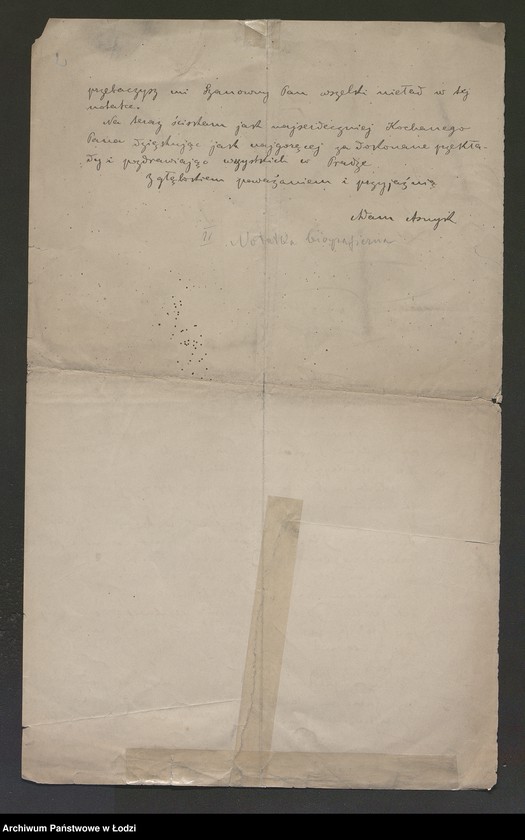 przebaczysz mi Szanowny Pan wszelki nieład w tej
notatce.
Na teraz ściskam jak najserdeczniej Kochanego
Pana dziękując jak najgoręcej za doskonałe przekła-
dy i pozdrawiając wszystkich w Pradze
Z głębokiem poważaniem i przyjaźnią
Adam Asnyk
II Notatka biograficzna
Archiwum Państwowe w Łodzi